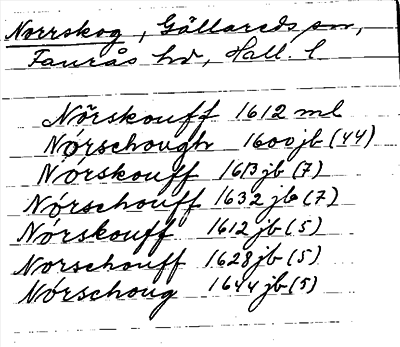 Norrskog, Gällareds sn,
Faurås hd, Hall. l.
Nörskouff 1612 ml
Nórschough 1600 jb (44)
Nórskouff 1613 jb (7)
Nórschouff 1632 jb (7)
Nórskouff 1612 jb (5)
Norschouff 1628 jb (5)
Nórschoug 1644 jb (5)